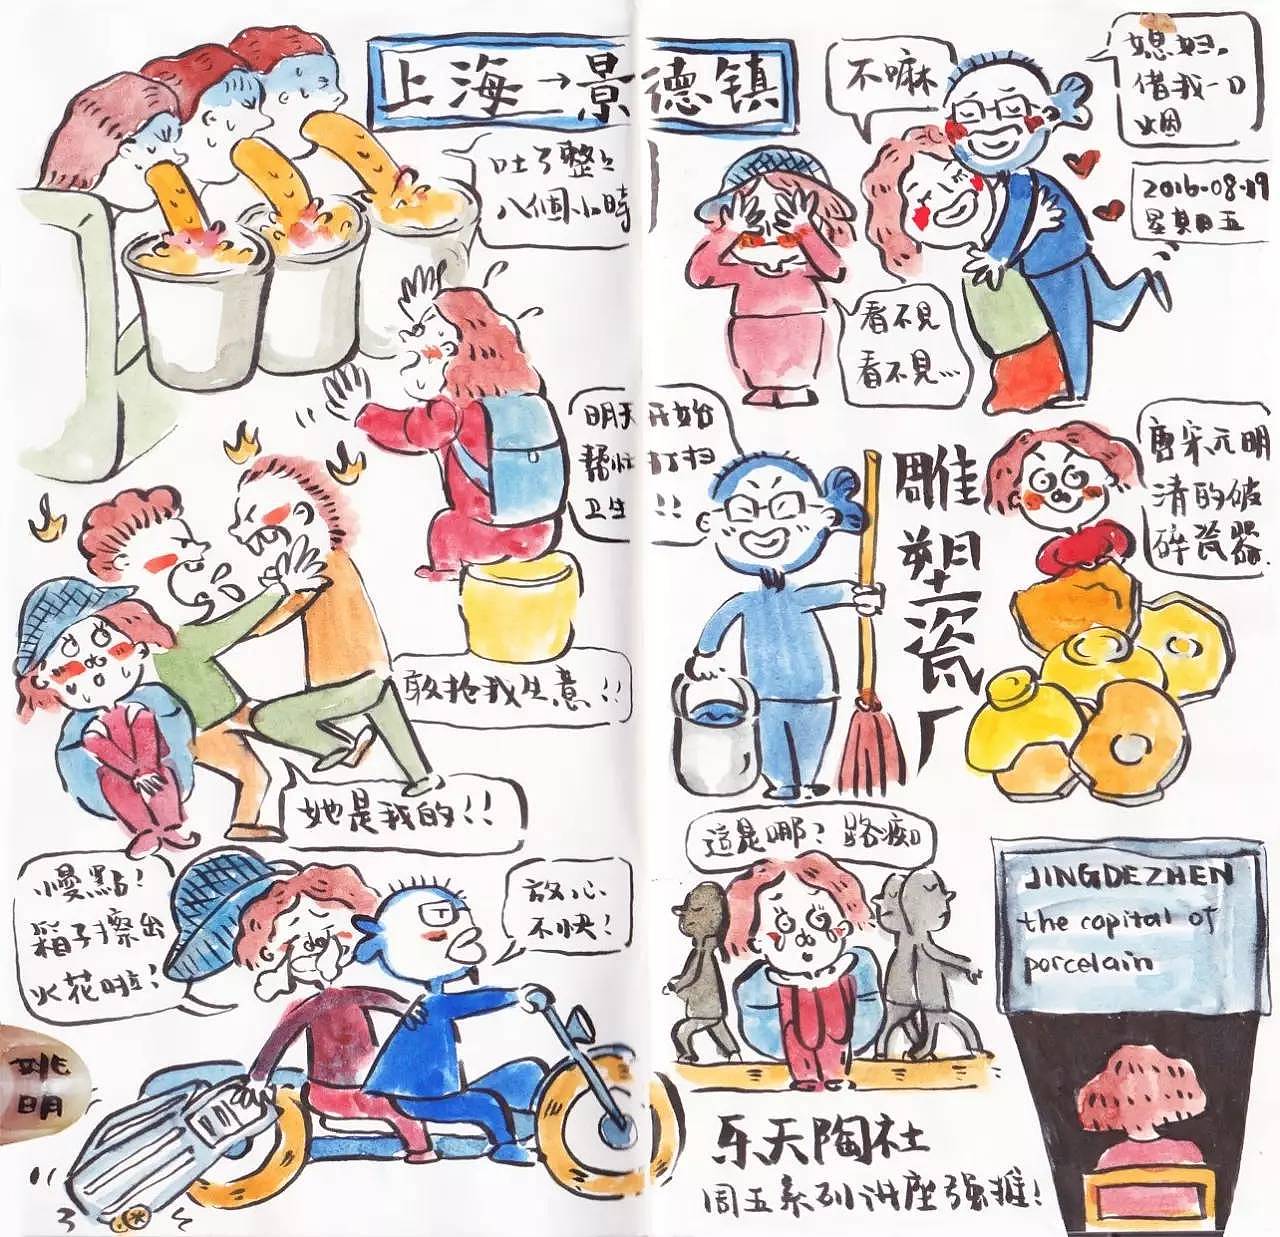 上海→景德镇
吐了整整
八個小時
不嘛
媳妇,
借我一口
烟
2016-08-19
星期五
看不見
看不見…
明天开始
帮忙打扫
卫生!!
雕塑瓷厂
唐宋元明
清的破
碎瓷器.
敢抢我生意!!
她是我的!!
慢點!
箱子擦出
火花啦!
放心
不快!
這是哪?路痴
JINGDEZHEN
the capital of
porcelain
姚
明
乐天陶社
周五系列讲座强推!